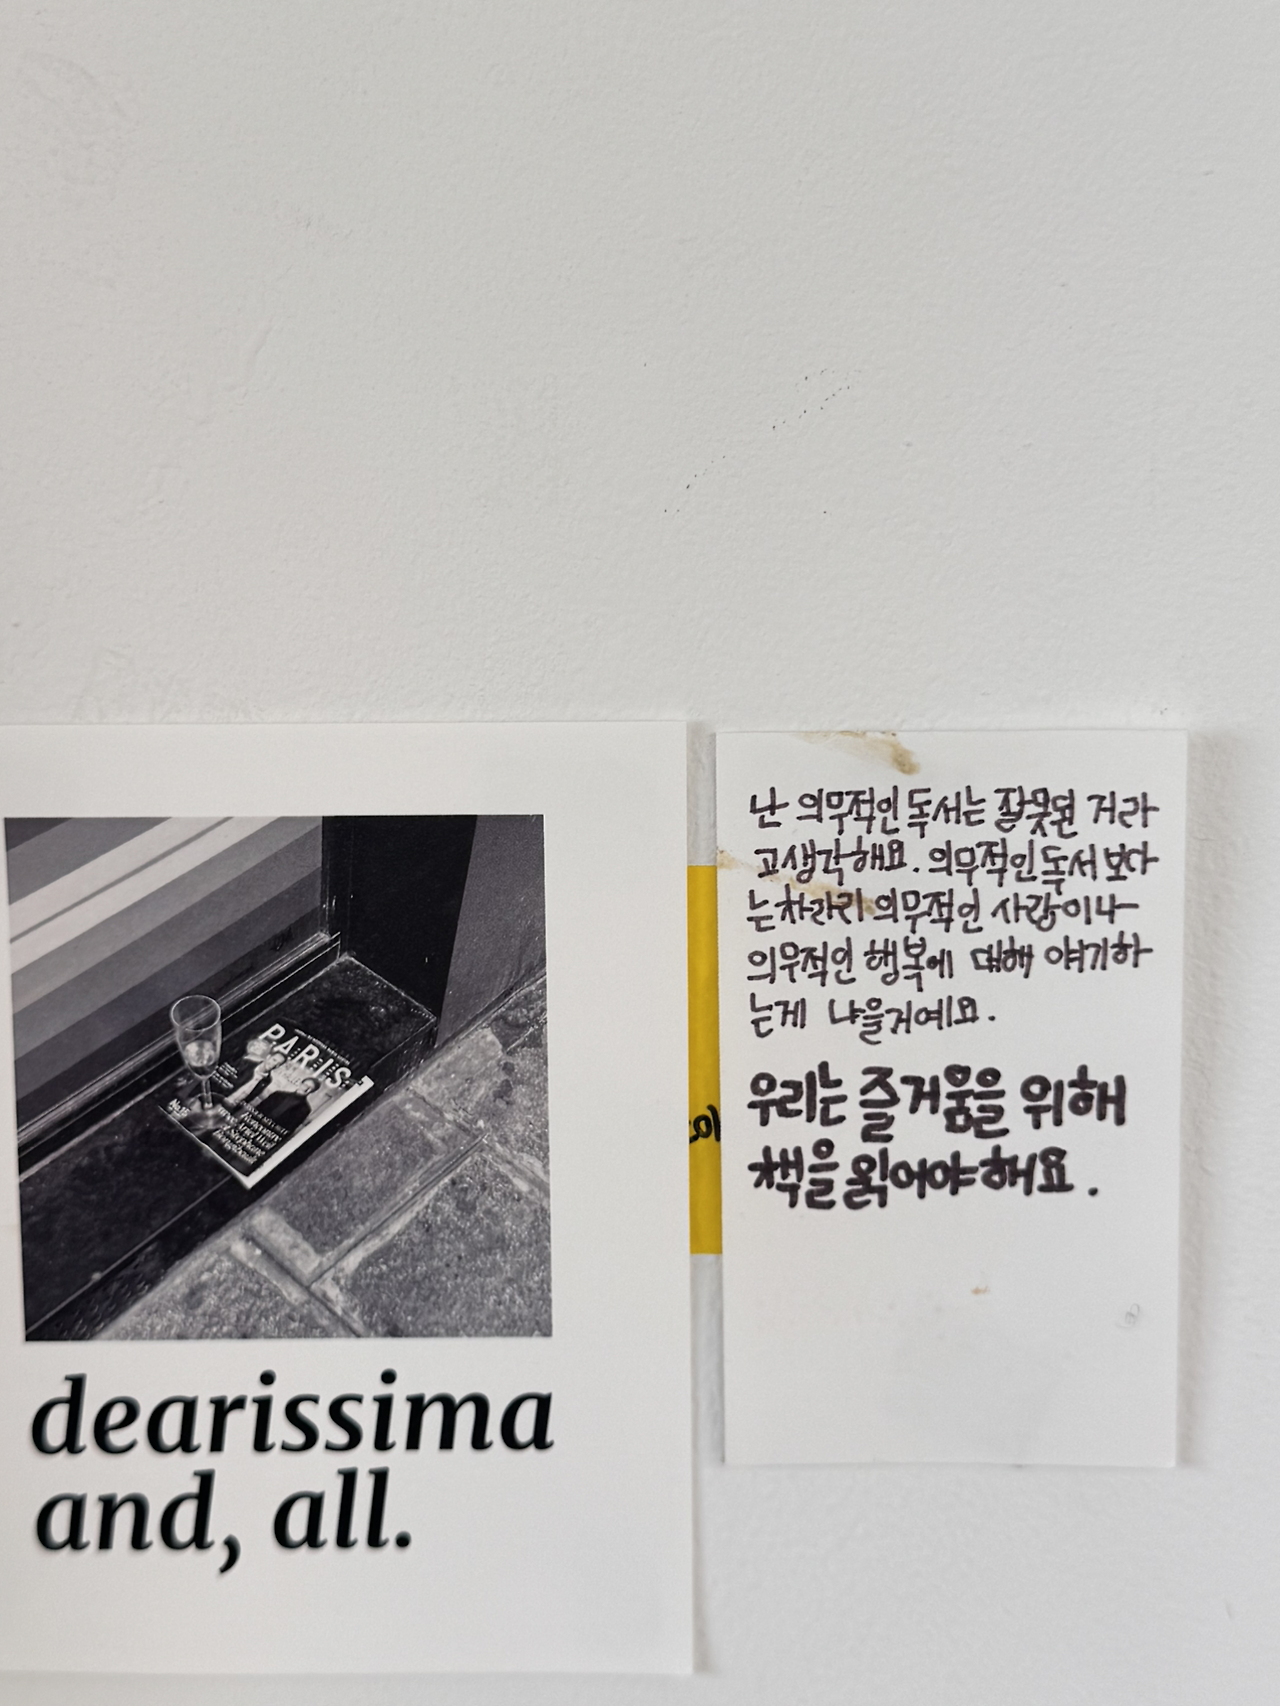 PARIS
dearissima
and, all.
난 의무적인 독서는 잘못된 거라
고 생각해요. 의무적인 독서 보다
는 차라리 의무적인 사랑이나
의무적인 행복에 대해 얘기하
는게 나을거예요.
우리는 즐거움을 위해
책을 읽어야해요.